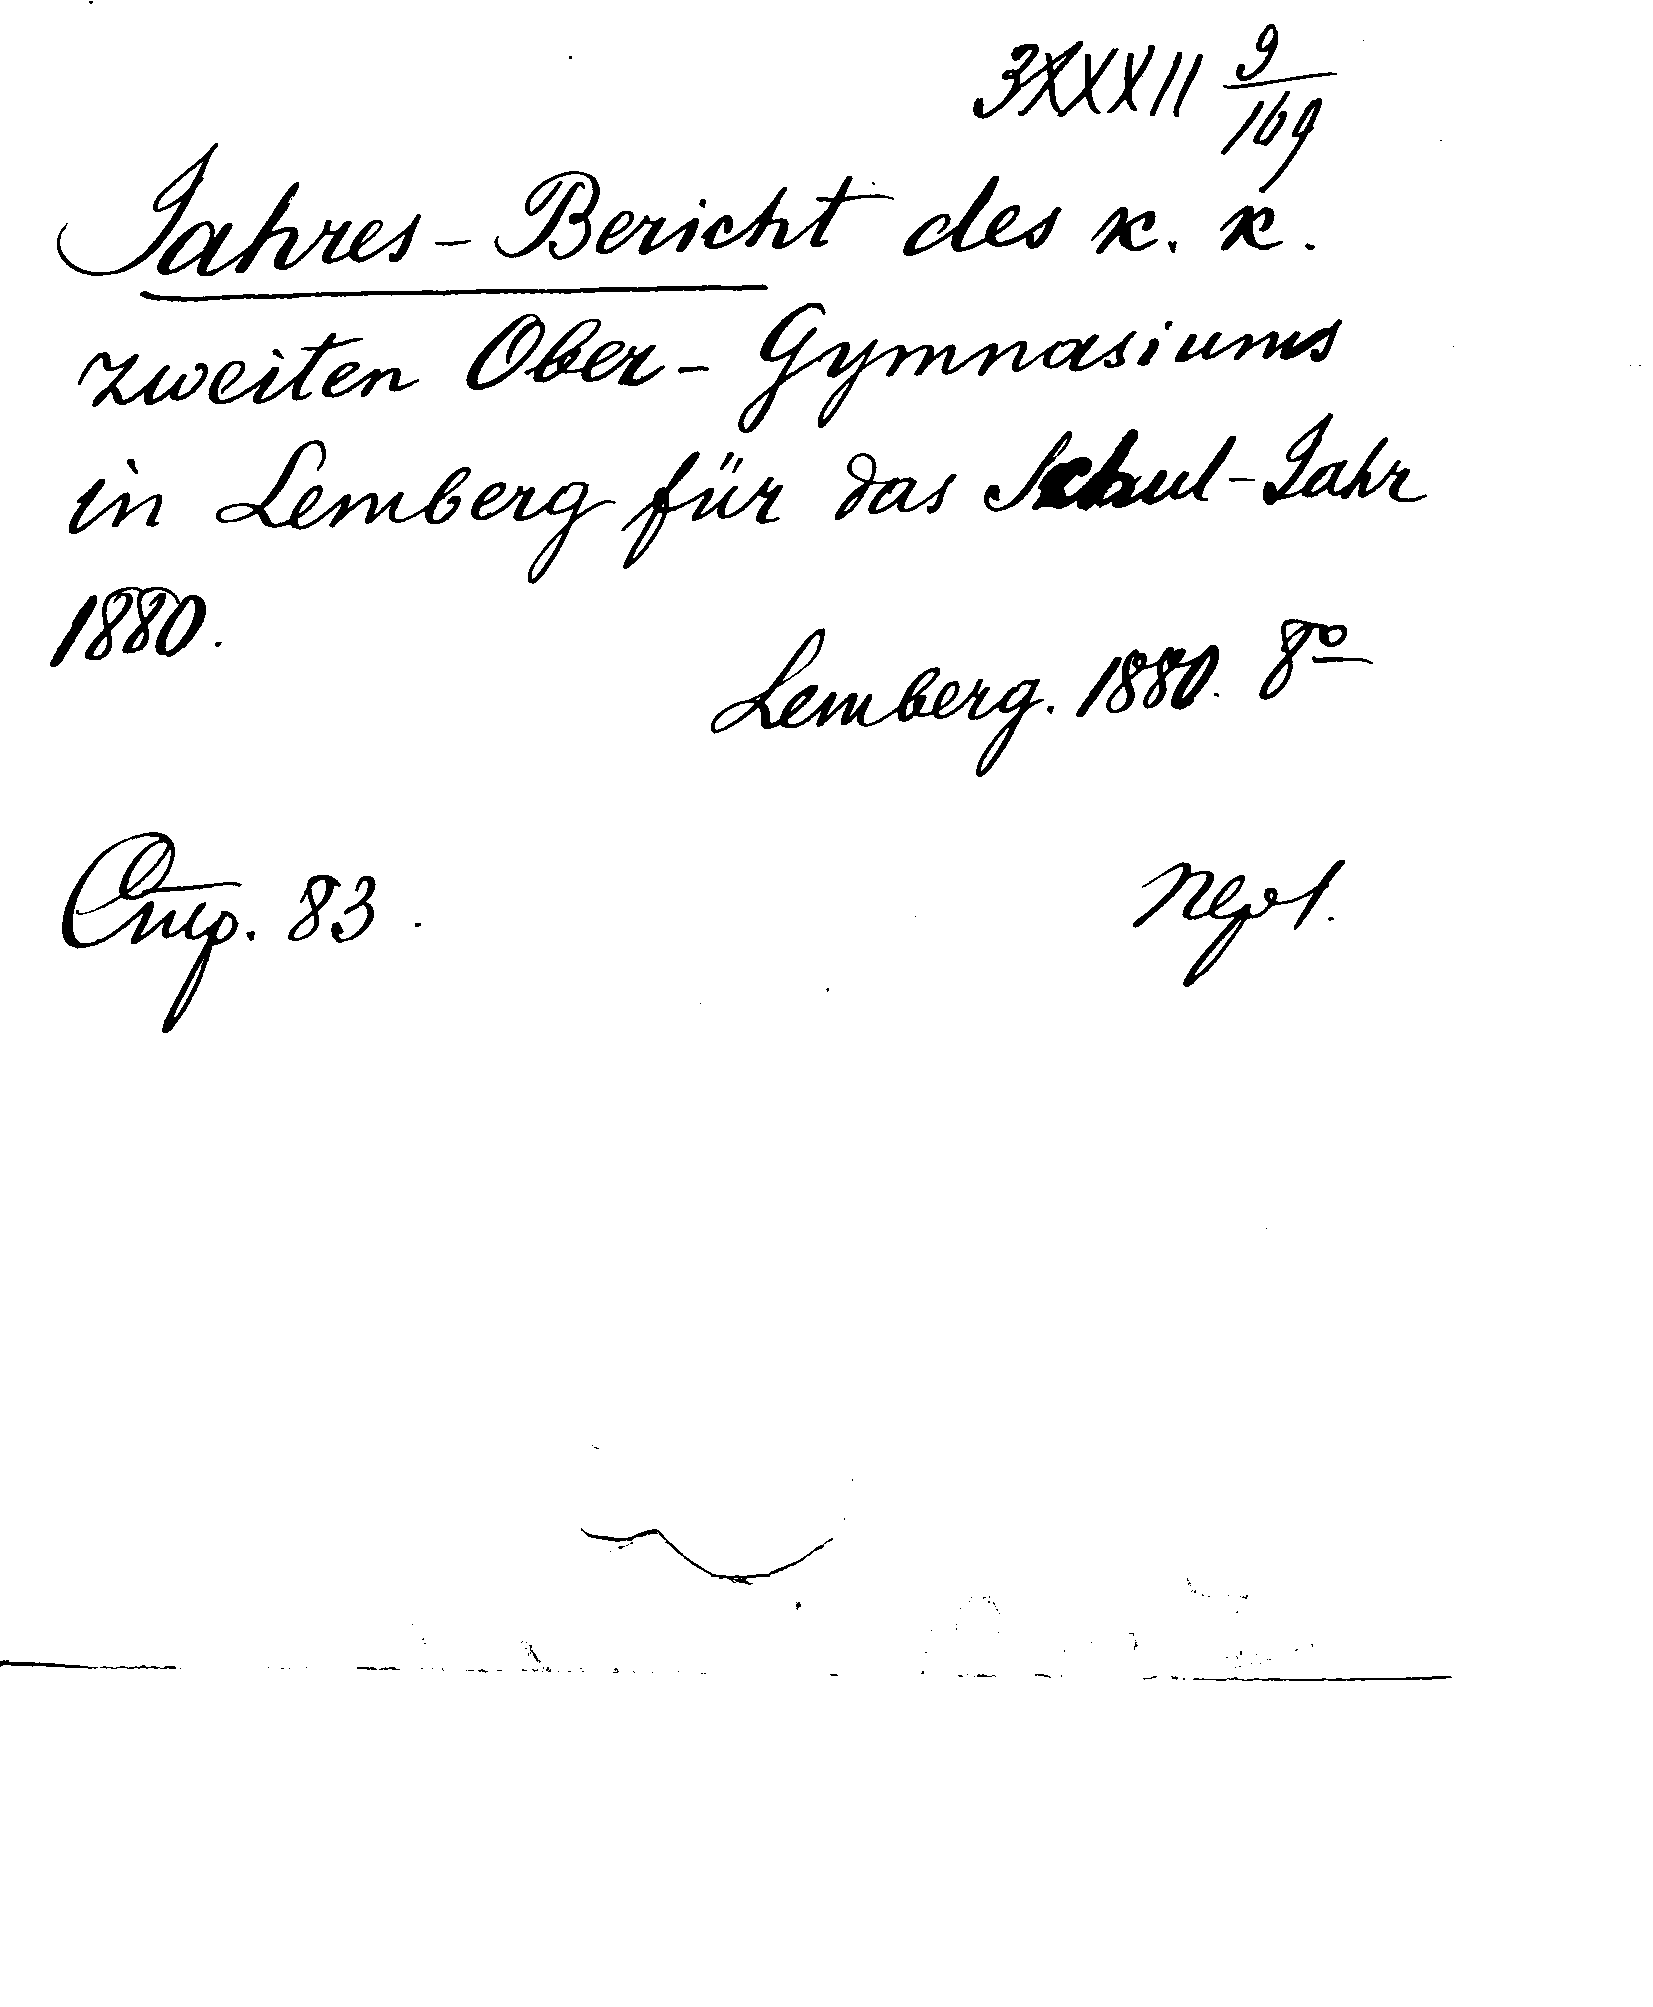 3XXXII 9/169
Jahres-Bericht des k. k.
zweiten Ober-Gymnasiums
in Lemberg für das Schul-Jahr
1880.
Lemberg. 1880. 8º
83.